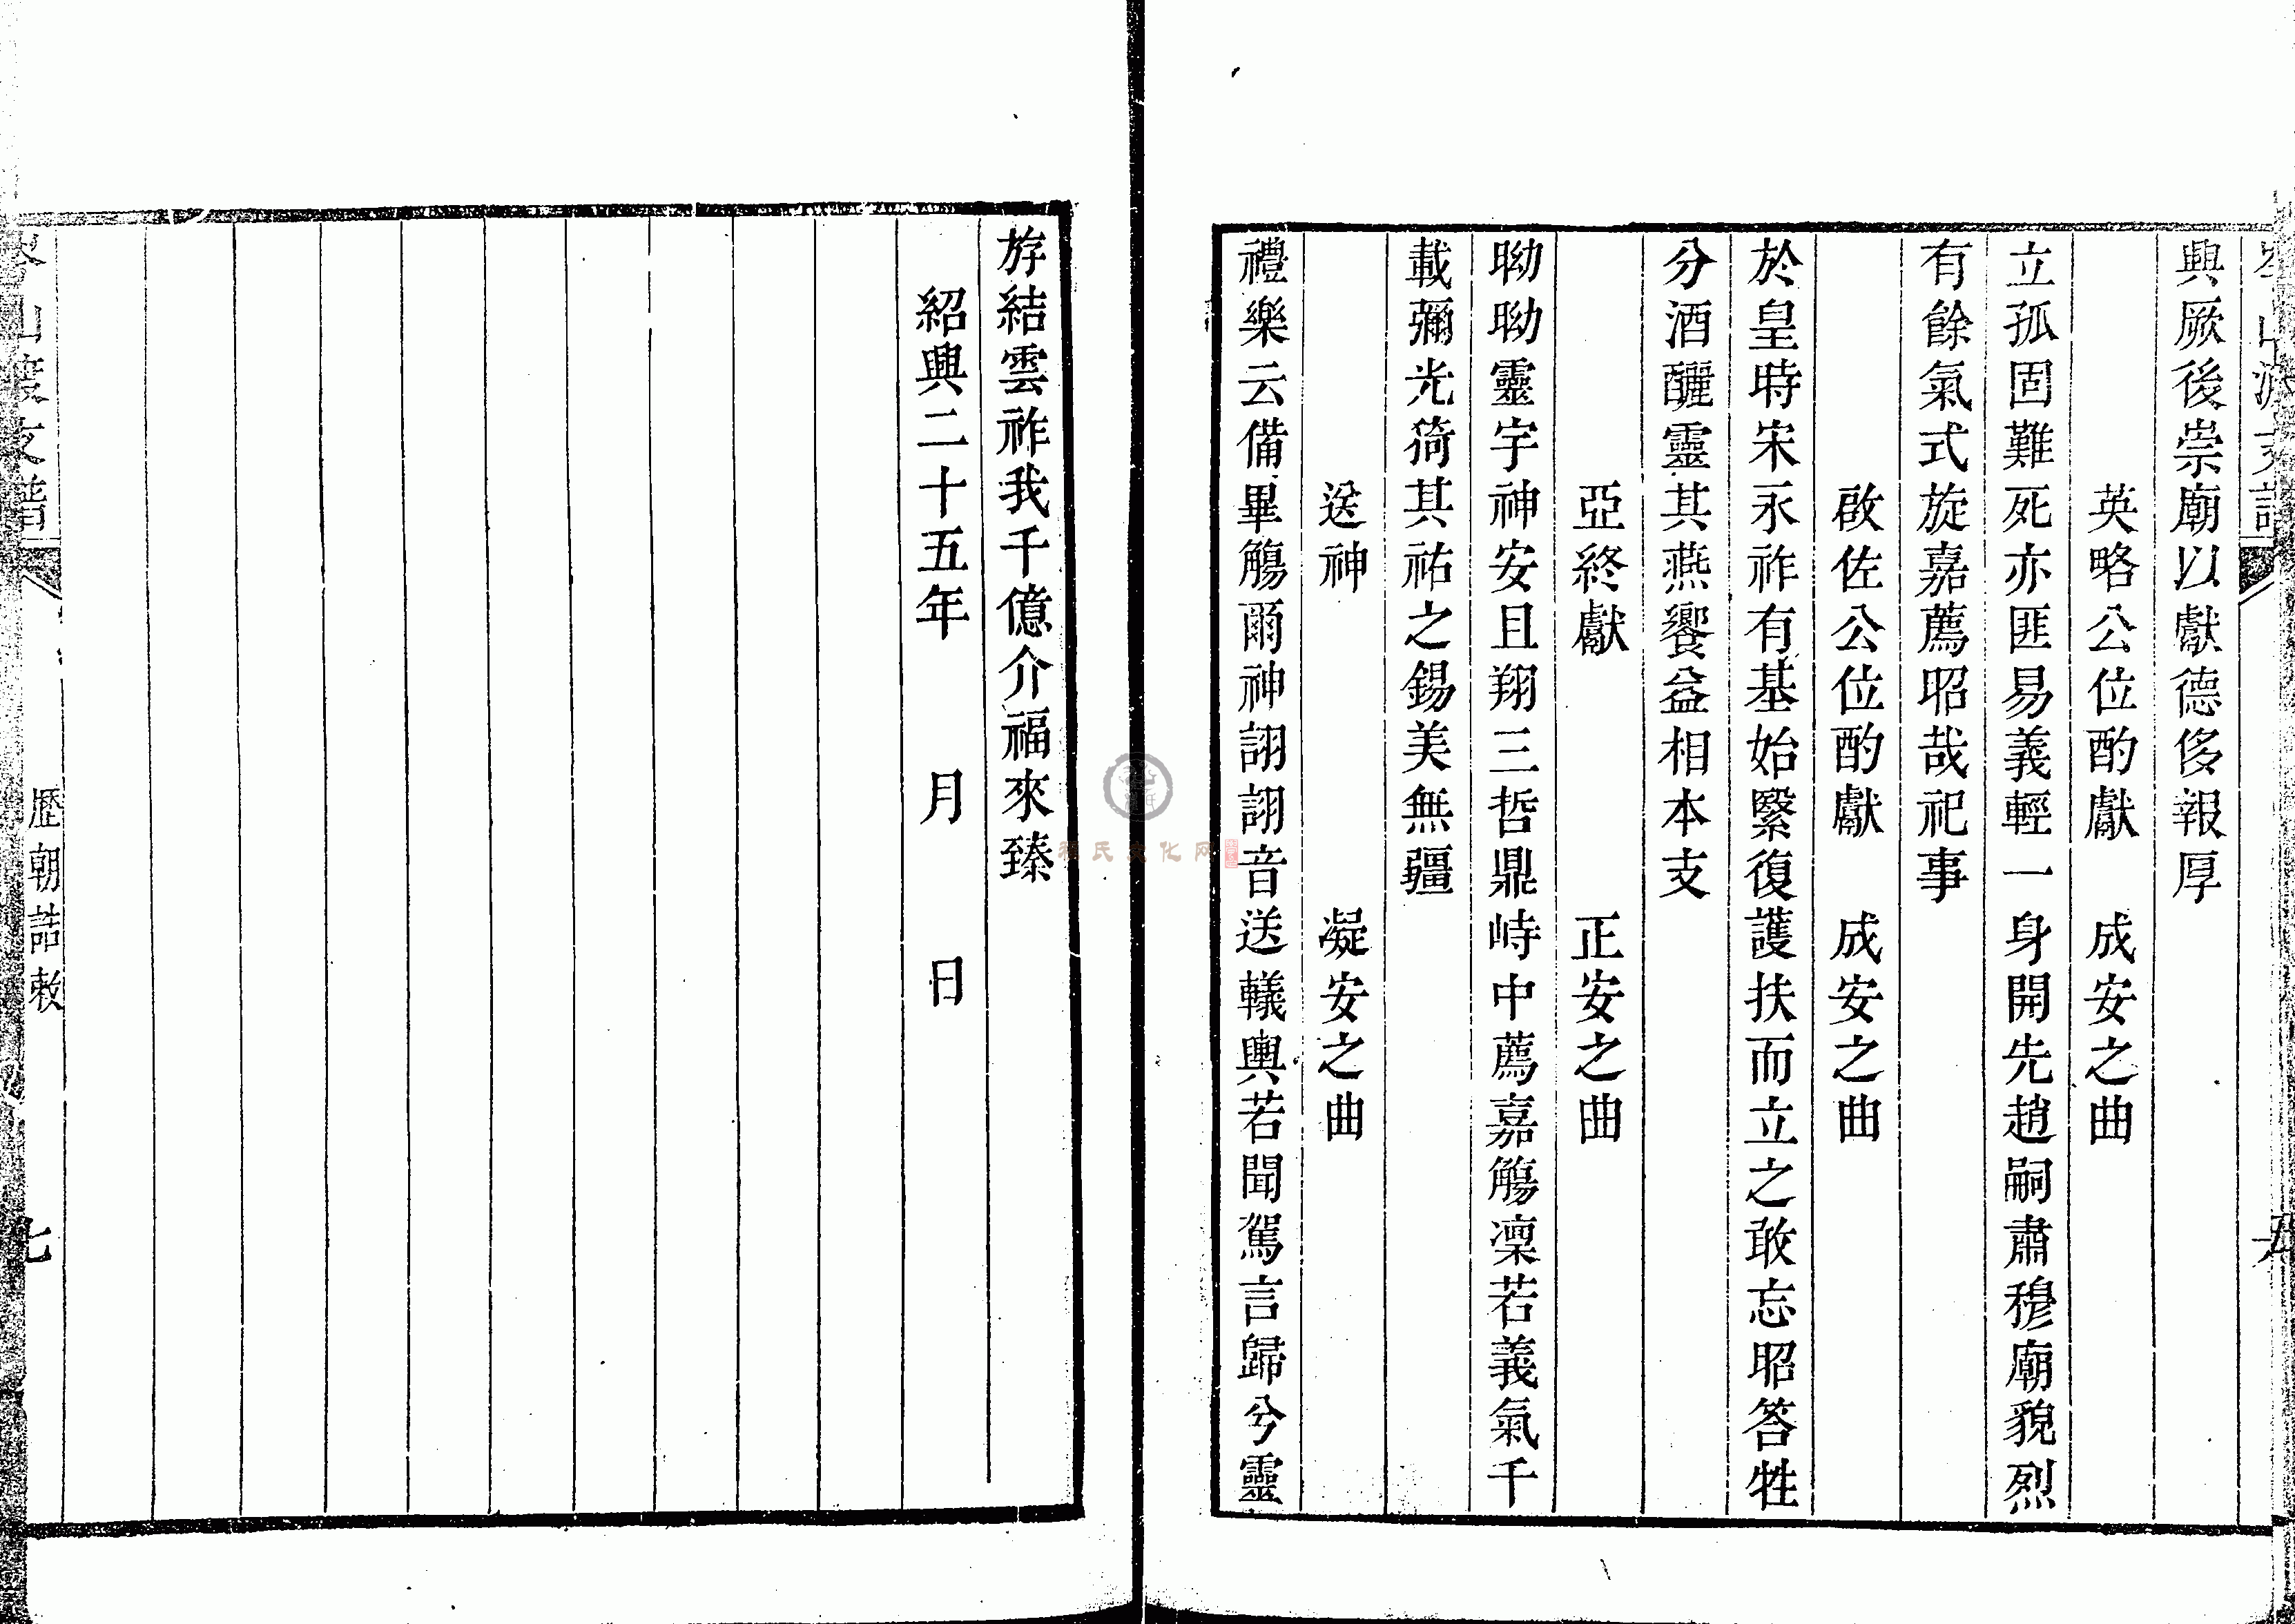 興厥後崇廟以獻德侈報厚
英略公位酌獻　成安之曲
立孤固難死亦匪易義輕一身開先趙嗣肅穆廟貌烈
有餘氣式旋嘉薦昭哉祀事
啟佐公位酌獻　成安之曲
於皇時宋永祚有基始緊復護扶而立之敢忘昭答牲
分酒釃靈其燕饗益相本支
亞終獻　正安之曲
眑眑靈宇神安且翔三哲鼎峙中薦嘉觴凜若義氣千
載彌光猗其祐之錫美無疆
送神　凝安之曲
禮樂云備畢觴爾神詡詡音送轙輿若聞駕言歸兮靈
斿結雲祚我千億介福來臻
紹興二十五年　月　日
歷朝誥敕
七